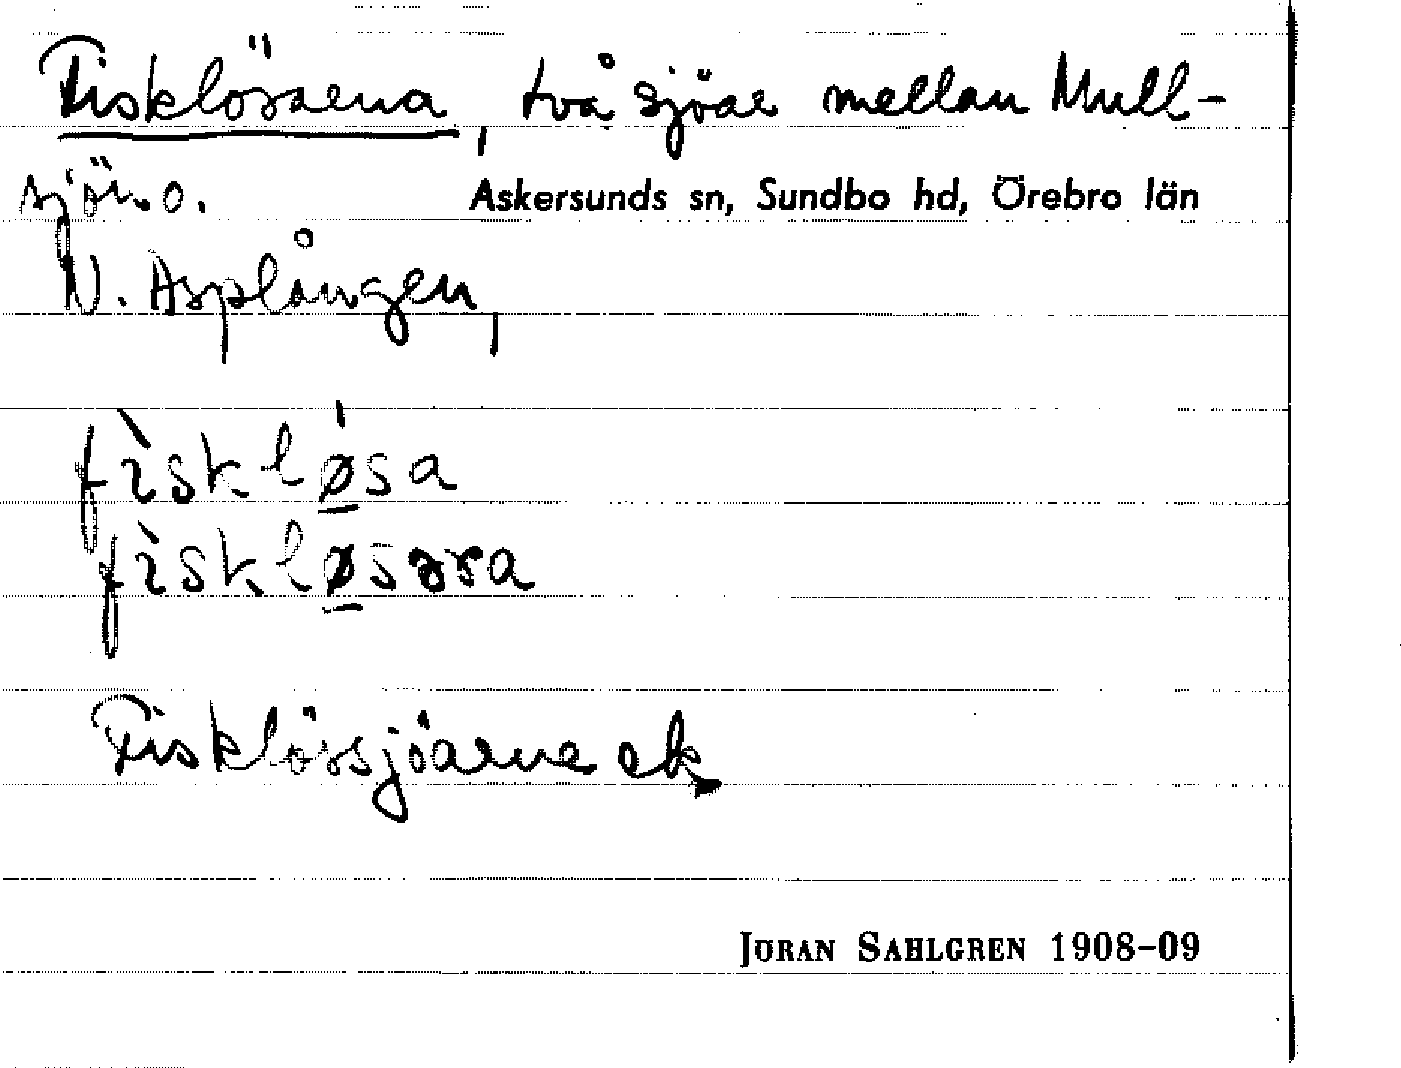 Fisklösarna, två sjöar mellan Mull-
sjön o.
Askersunds sn, Sundbo hd, Örebro län
N. Asplången,
fìskløsa
fìskløsərα
Fisklössjöarne ek
JÖRAN SAHLGREN 1908-09